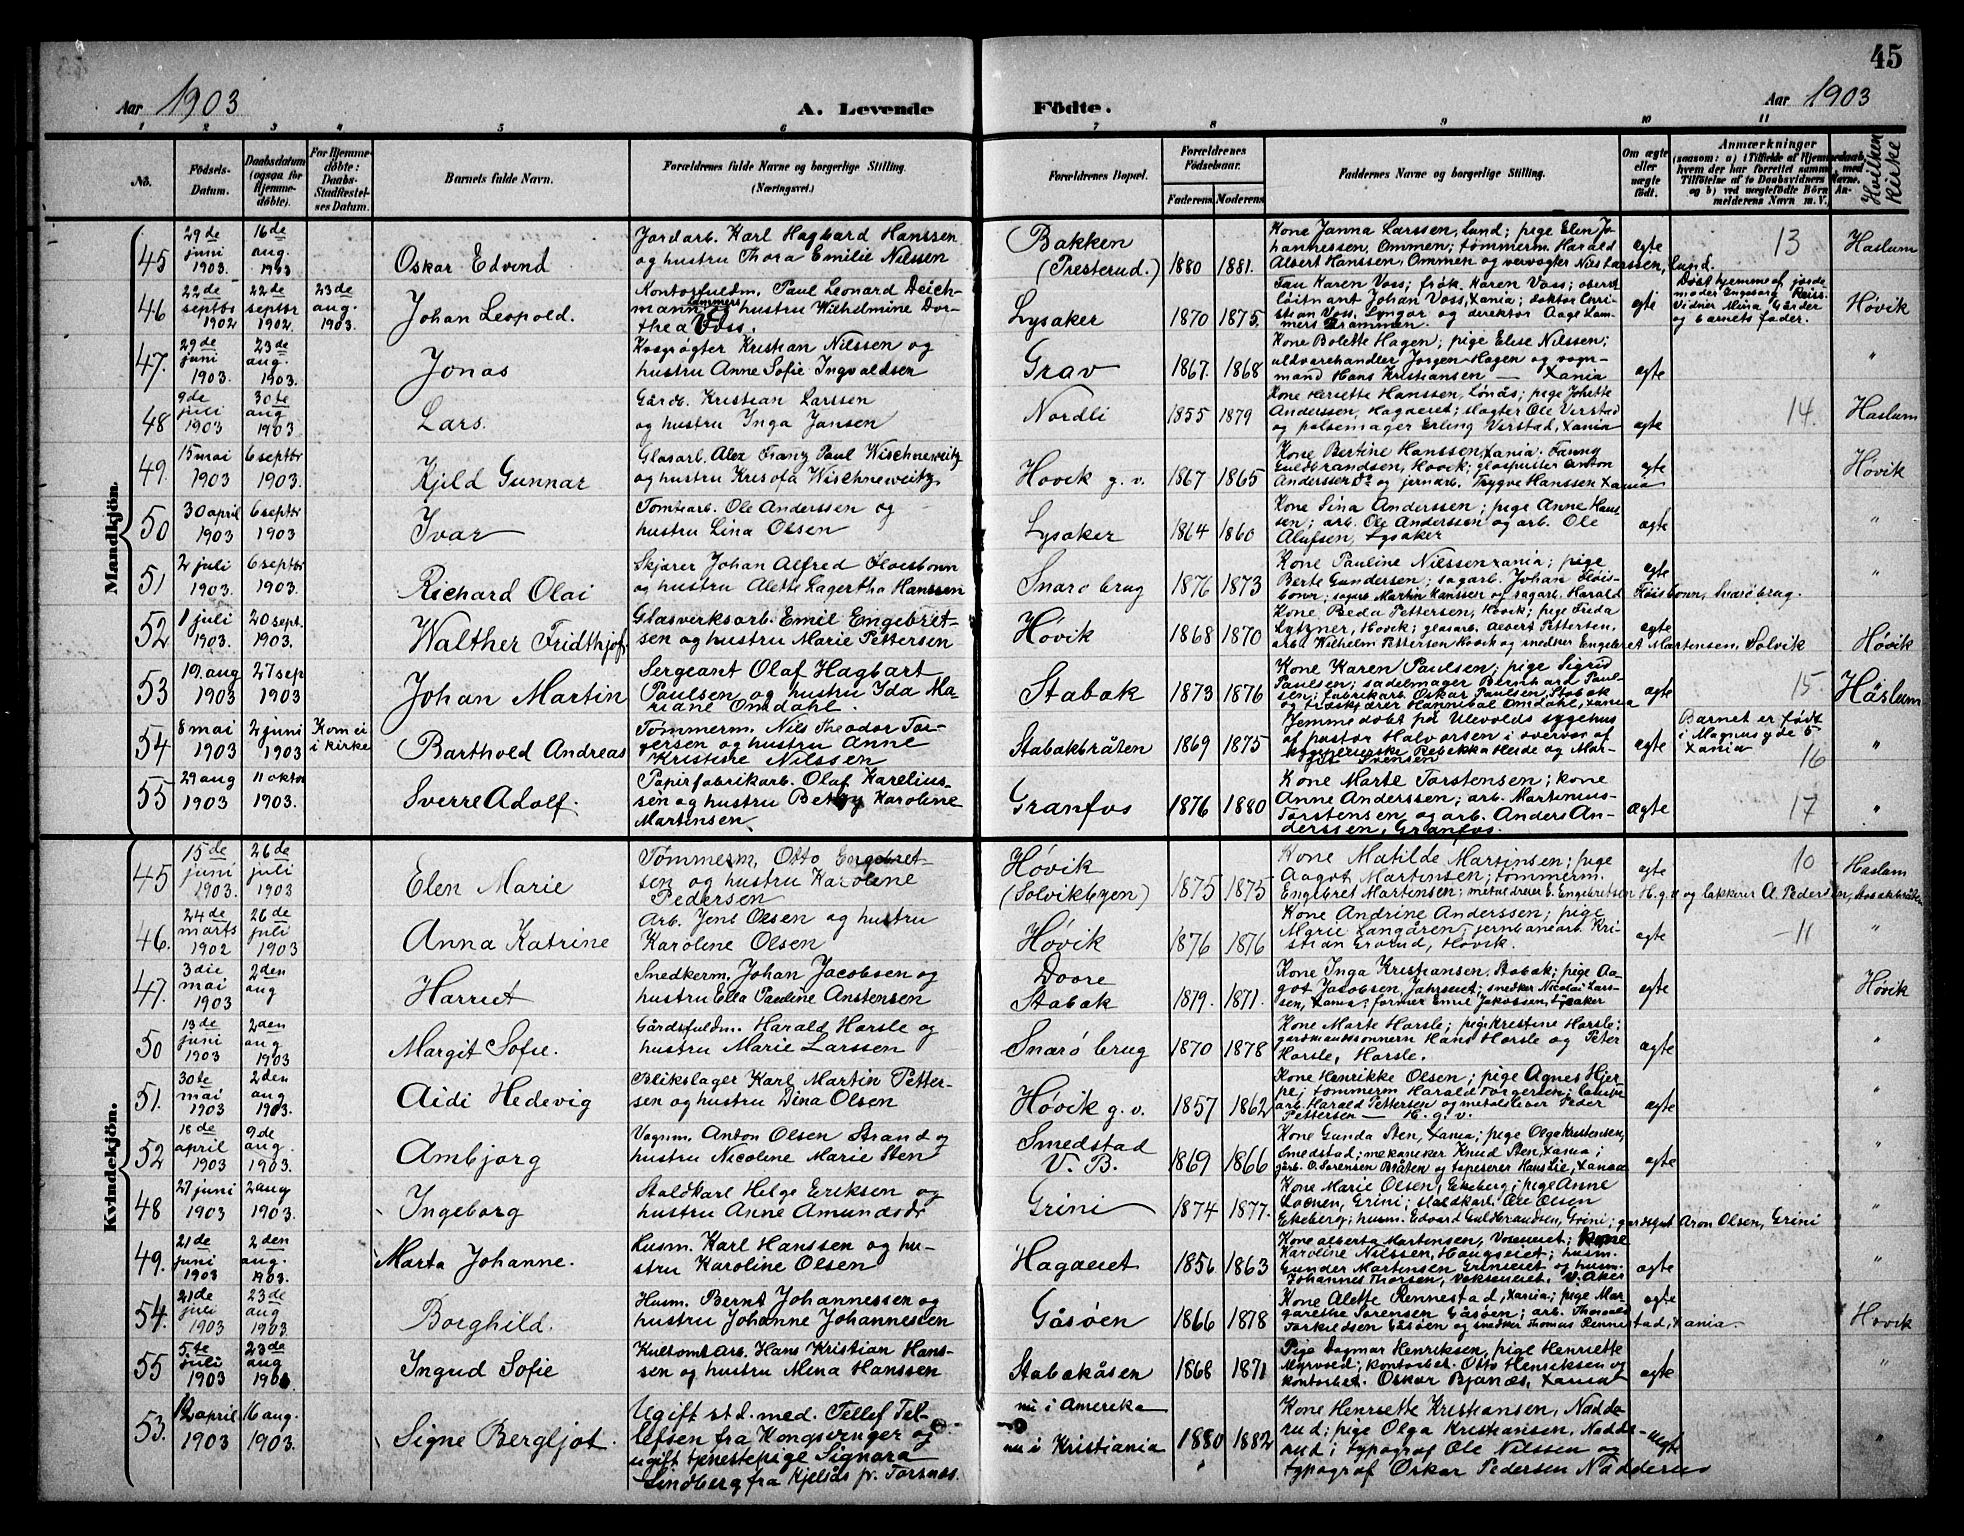 45
Aar 1903 A. Levende Födte. Aar 1903
1 2 3 4 5 6 7 8 9 10 11
No. Födsels-Datum. Daabsdatum (ogsaa for Hjemmedöbte). For Hjemmedöbte: Daabs-Stadfæstelses Datum. Barnets fulde Navn. Forældrenes fulde Navne og borgerlige Stilling. (Næringsvei.) Forældrenes Bopæl. Forældrenes Födselsaar. Faderens Moderens Faddernes Navne og borgerlige Stilling. Om ægte eller uægte födt. Anmærkninger Hvilken Kirke
Mandkjön.
45 29de juni 1903. 16de aug. 1903
Oskar Edvind
Jordarb. Karl Hagbard Hanssen
og hustru Thora Emilie Nilssen
Bakken
(Presterud.) 1880 1881.
Kone Janna Larssen, Lund; pige Elen Jo-
hannessen, Ommen; tømmerm. Harald
Albert Hanssen, Ommen og vervogter Nils Larssen, Lund.
ægte 13 Haslum
46 22de septbr 1902 22de septbr 1902. 23de aug. 1903.
Johan Leopold.
Kontorfuldm. Paul Leonard Deich-
mann og hustru Wilhelmine Dor-
thea Voss.
Lammers
Lysaker 1870 1875.
Fru Karen Voss; frøk. Karen Voss; oberst
løitnant Johan Voss, Xania; doktor Kri-
stian Voss, Lyngør og direktør Aage Lam-
mers Drammen.
ægte
Døbt hjemme af jorde-
moder Ingeborg Reiss
Vidner Mina Gårder
og barnets fader.
Høvik
47. 29de juni 1903. 23de aug. 1903.
Jonas
Kosgrøgter Kristian Nilssen og
hustru Anne Sofie Ingvaldsen
Grav 1867. 1868
Kone Bolette Hagen; pige Elise Nilssen;
uldvarehandler Jørgen Hagen og vogn-
mand Hans Kristiansen — Xania
ægte "
48 9de juli 1903 30te aug 1903
Lars.
Gårdb. Kristian Larssen
og hustru Inga Jansen
Nordli 1855 1879
Kone Hersette Hanssen, Lønås; pige Johette
Anderssen, Hagaeiet; slagter Ole Verstad
og pølsemager Erling Verstad, Xania
ægte 14. Haslum
49. 15 mai 1903 6 septbr 1903.
Kjeld Gunnar
Glasarb. Alex Franz Paul Wischneweitz
og hustru Kresofa Wischneweitz
Høvik g. v. 1867 1865
Kone Bertine Hanssen, Xania. Fanny
Guldbrandsen, Høvik; glaspuster Anton
Anderssen do og jernarb. Trygve Hanssen Xania
ægte Høvik
50 30 april 1903 6 septbr 1903
Ivar
Tomtearb. Ole Anderssen og
hustru Lina Olsen
Lysaker 1864 1860
Kone Sina Anderssen; pige Anne Hans-
sen; arb. Ole Anderssen og arb. Ole
Alufsen, Lysaker
ægte "
51 2 juli 1903. 6 septbr 1903.
Richard Olai
Skjærer Johan Alfred Floesbonn
og hustru Alette Lagertha Hanssen
Snarø brug 1876 1873
Kone Pauline Nilssen Xania; pige
Berte Gundersen; sagarb. Johan Fløis-
bonn; sagarb. Martin Hanssen og sagarb. Harald Fløisbonn, Snarø brug.
ægte "
52 1 juli 1903. 20 sept. 1903.
Walther Fridthjof
Glasverksarb. Emil Engebret-
sen og hustru Marie Pettersen
Høvik 1868 1870
Kone Beda Pettersen, Høvik; pige Frida
Lytzner, Høvik; glasarb. Albert Pettersen,
arb. Wilhelm Pettersen Høvik og snedker Engebret Martensen, Solvik
ægte Høvik
53 19. aug 1903 27 sep 1903
Johan Martin
Sergeant Olaf Hagbart
Paulsen og hustru Ida Ma-
riane Omdahl.
Stabæk 1873 1876
Kone Karen Paulsen; pige Sigrid
Paulsen; sadelmager Bernhard Paul-
sen; fabrikarb. Oskar Paulsen, Stabæk
og træskjærer Hannibal Omdahl, Xania
ægte 15 Haslum
54 8 mai 1903 2 juni 1903 Kom ei i kirke
Barthold Andreas
Tømmerm. Nils Theodor Tor-
gersen og hustru Anne
Kristine Nilssen
Stabækbråten 1869 1875
Hjemmedøbt på Ulevolds sygehus
af pastor Halvorsen i overvær af
sygepleierske Rebekka Heide og Mar-
git Svensen
ægte
Barnet er født
i Magnusgde 5
Xania
16 "
55 29 aug 1903 11 oktbr 1903.
Sverre Adolf.
Papirfabrikarb. Olaf Karelius-
sen og hustru Betzy Karoline
Martinsen
Granfos 1876 1880
Kone Marte Torstensen; kone
Anne Anderssen; arb. Martinius
Torstensen og arb. Anders An-
derssen, Granfos.
Ægte 17 "
Kvindekjön.
45 15de juni 1903. 26de juli 1903
Elen Marie
Tømmerm. Otto Engebret-
sen og hustru Karoline
Pedersen
Høvik
(Solvikbyen) 1875 1875
Kone Matilde Martinsen; pige
Aagot Martensen; tømmerm.
Engebret Martensen; metaldreier E. Engebretsen H.g.v og lakkerer A. Pedersen, Stabækbråten
ægte 10 Haslum
46. 24de marts 1902 26de juli 1903
Anna Katrine
Arb. Jens Olsen og hustru
Karoline Olsen
Høvik 1876 1876
Kone Andrine Anderssen; pige
Marie Langåren; jernbanearb. Kri-
stian Grorud, Høvik.
ægte 11 "
47. 3die mai 1903 2den aug
Harriet
Snedkerm. Johan Jacobsen og
hustru Ella Pauline Anstensen
Doore
Stabæk 1879. 1871.
Kone Inga Kristiansen, Stabæk; pige Aa-
got Jacobsen, Jahrseiet; snedker Nicolai Lars-
sen, Xania; former Emil Jakobsen, Lysaker
ægte Høvik
50 13de juni 1903 2den aug 1903
Margit Sofie.
Gårdsfuldm. Harald Horsle og
hustru Marie Larssen
Snarø brug 1870 1878
Kone Marte Horsle; pige Kristine Horsle;
gårdmandssønnern Hans Horsle og Peter
Horsle, Horsle.
ægte "
51. 30te mai 1903 2den aug 1903.
Aidi Hedevig
Blikslager Karl Martin Petter-
sen og hustru Dina Olsen
Høvik g. v. 1857 1862
Kone Henrikke Olsen; pige Agnes Hjer-
pe; tømmerm Harald Torgersen;
arb. Harald Pettersen og metalsliber Peder
Pettersen — H. g. v.
ægte "
52 18de april 1903 9de aug. 1903.
Ambjørg
Vognm. Anton Olsen Strand og
hustru Nicoline Marie Sten
Smedstad
V. B. 1869 1866
Kone Gunda Sten, Xania; pige Olga Kristensen,
Smedstad; mekaniker Knud Sten, Xania;
gårb. O. Sørensen Bråten og tapeserer Hans Lie, Xania
ægte "
48 27 juni 1903 2 aug 1903.
Ingeborg
Staldkarl Helge Eriksen og
hustru Anne Amundsdr
Grini 1874 1877.
Kone Marie Olsen, Ekeberg; pige Anne
Loenen, Grini; staldkarl Ole Olsen
Ekeberg; husm. Edvard Guldbrandsen, Grini; gårdsgut Aron Olsen, Grini
"
49. 21de juni 1903 2den aug. 1903.
Marta Johanne.
Husm. Karl Hanssen og hu-
stru Karoline Olsen
Hagaeiet 1856 1863
Kone Alberta Martensen, Voxeneiet; kone
Karoline Nilssen, Haugseiet; husm.
Gunder Martensen Grinieiet og husm.
Johannes Thorsen, Vokseneiet. V. Aker
ægte "
54. 21de juli 1903 23de aug 1903.
Borghild.
Husm. Bernt Johannessen og
hustru Johanne Johannessen
Gåsøen 1866 1878
Kone Alette Rennestad, Xania; pige Mar-
garethe Sørensen Gåsøen; arb. Thorvald
Torkildsen Gåsøen og snedker Thomas Rennestad, Xania.
ægte Høvik
55 5te juli 1903 23de aug 1903.
Ingrid Sofie
Kultomtarb. Hans Kristian Hans-
sen og hustru Mina Hanssen
Stabækåsen 1868 1871
Pige Dagmar Henriksen, pige Henriette
Myrvold; kontorbet. Otto Henriksen og
kontorbet. Oskar Bjønæs, Xania
ægte "
53. 12 april 1903 16 aug. 1903.
Signe Bergljot.
Ugift st d. med. Tellef Tel-
lefsen fra Kongsvinger og
ugift tjenestepige Signora
Lindberg fra Kjelsås pr. Torsnæs.
nu i Amerika
nu i Kristiania 1880 1882
Kone Henriette Kristiansen, Nadde-
rud; pige Olga Kristiansen, Nadde-
rud; typograf Ole Nilssen og
typograf Oskar Pedersen Nadderud
uægte "